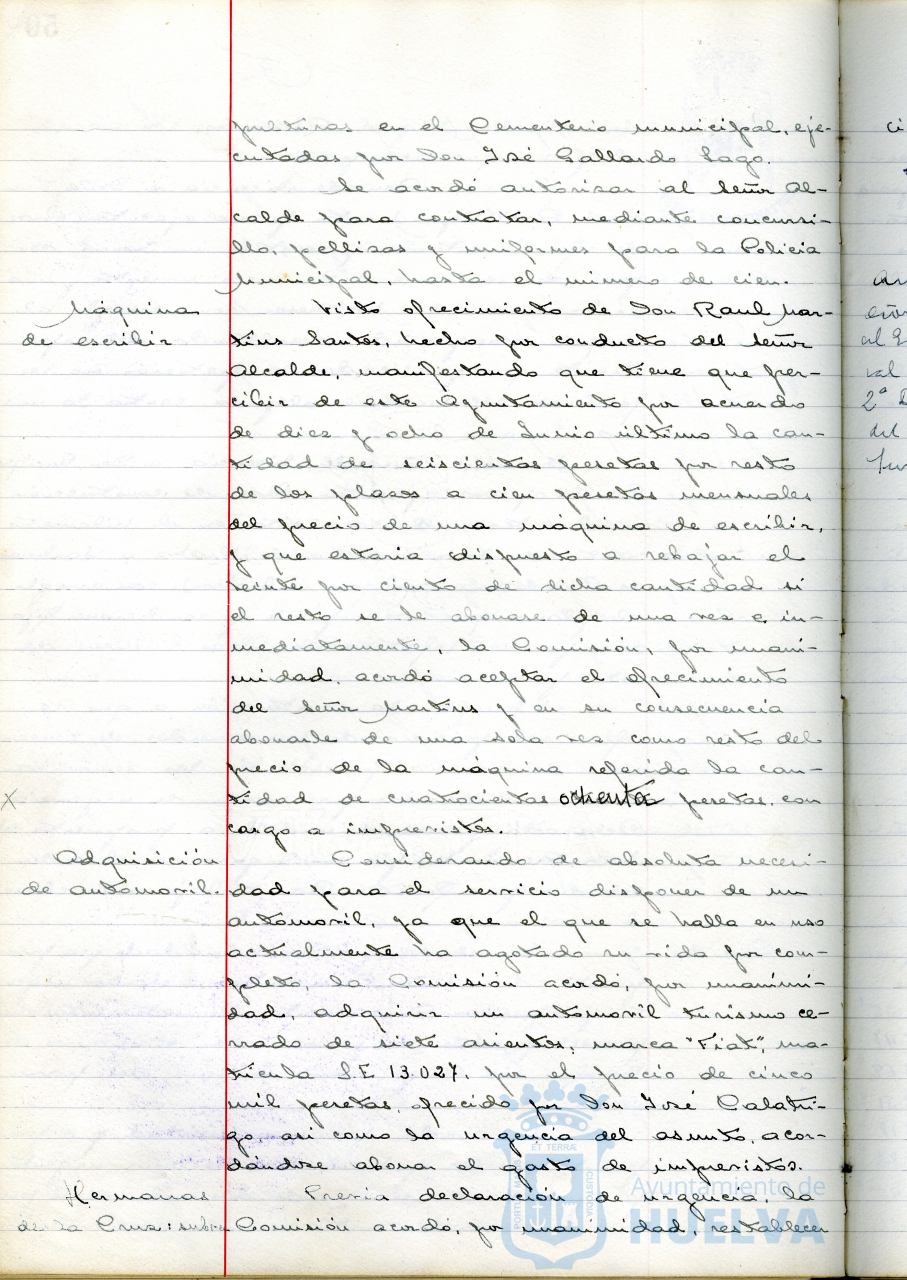 pulturas en el Cementerio municipal, eje-
cutadas por Don José Gallardo Lago.
Se acordó autorizar al Señor Al-
calde para contratar, mediante concursi-
llo, pellizas y uniformes para la Policia
Municipal, hasta el número de cien.
Máquina
de escribir
Visto ofrecimiento de Don Raul Mar-
tins Santos, hecho por conducto del Señor
Alcalde, manifestando que tiene que per-
cibir de este Ayuntamiento por acuerdo
de diez y ocho de Junio último la can-
tidad de seiscientas pesetas por resto
de los plazos a cien pesetas mensuales
del precio de una máquina de escribir,
y que estaria dispuesto a rebajar el
veinte por ciento de dicha cantidad si
el resto se le abonase de una vez e in-
mediatamente, la Comisión, por unani-
midad, acordó aceptar el ofrecimiento
del Señor Martins y en su consecuencia
abonarle de una sola vez como resto del
precio de la máquina referida la can-
X
tidad de cuatrocientas ochenta pesetas, con
cargo a imprevistos.
Adquisición
de automovil.
Considerando de absoluta necesi-
dad para el servicio disponer de un
automovil, ya que el que se halla en uso
actualmente ha agotado su vida por com-
pleto, la Comisión acordó, por unanimi-
dad, adquirir un automovil turismo ce-
rrado de siete asientos, marca "Fiat", ma-
tricula S.E 13.027, por el precio de cinco
mil pesetas, ofrecido por Don José Calatri-
go, asi como la urgencia del asunto, acor-
dándose abonar el gasto de imprevistos.
Hermanas
de la Cruz: subve
Previa declaración de urgencia, la
Comisión acordó, por unanimidad, restablecer
Ayuntamiento de
HUELVA
ci
2ª
del